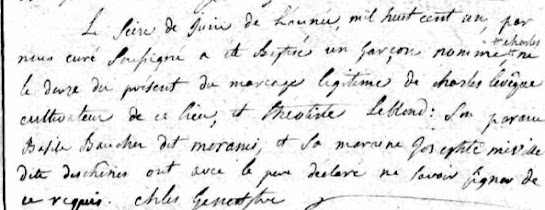 Le seize de Juin de L'année, mil huit cent un, par
nous curé soussigné a été Baptisé un garçon nommé "charles" né
le douze du présent du mariage légitime de charles levêque
cultivateur de ce lieu, et theotiste Leblond: Son parain
Basile Baucher dit morami, et Sa maraine Josephte miville
dite deschênes ont avec le pere déclaré ne savoir signer de
ce requis. Chles Genest ptre